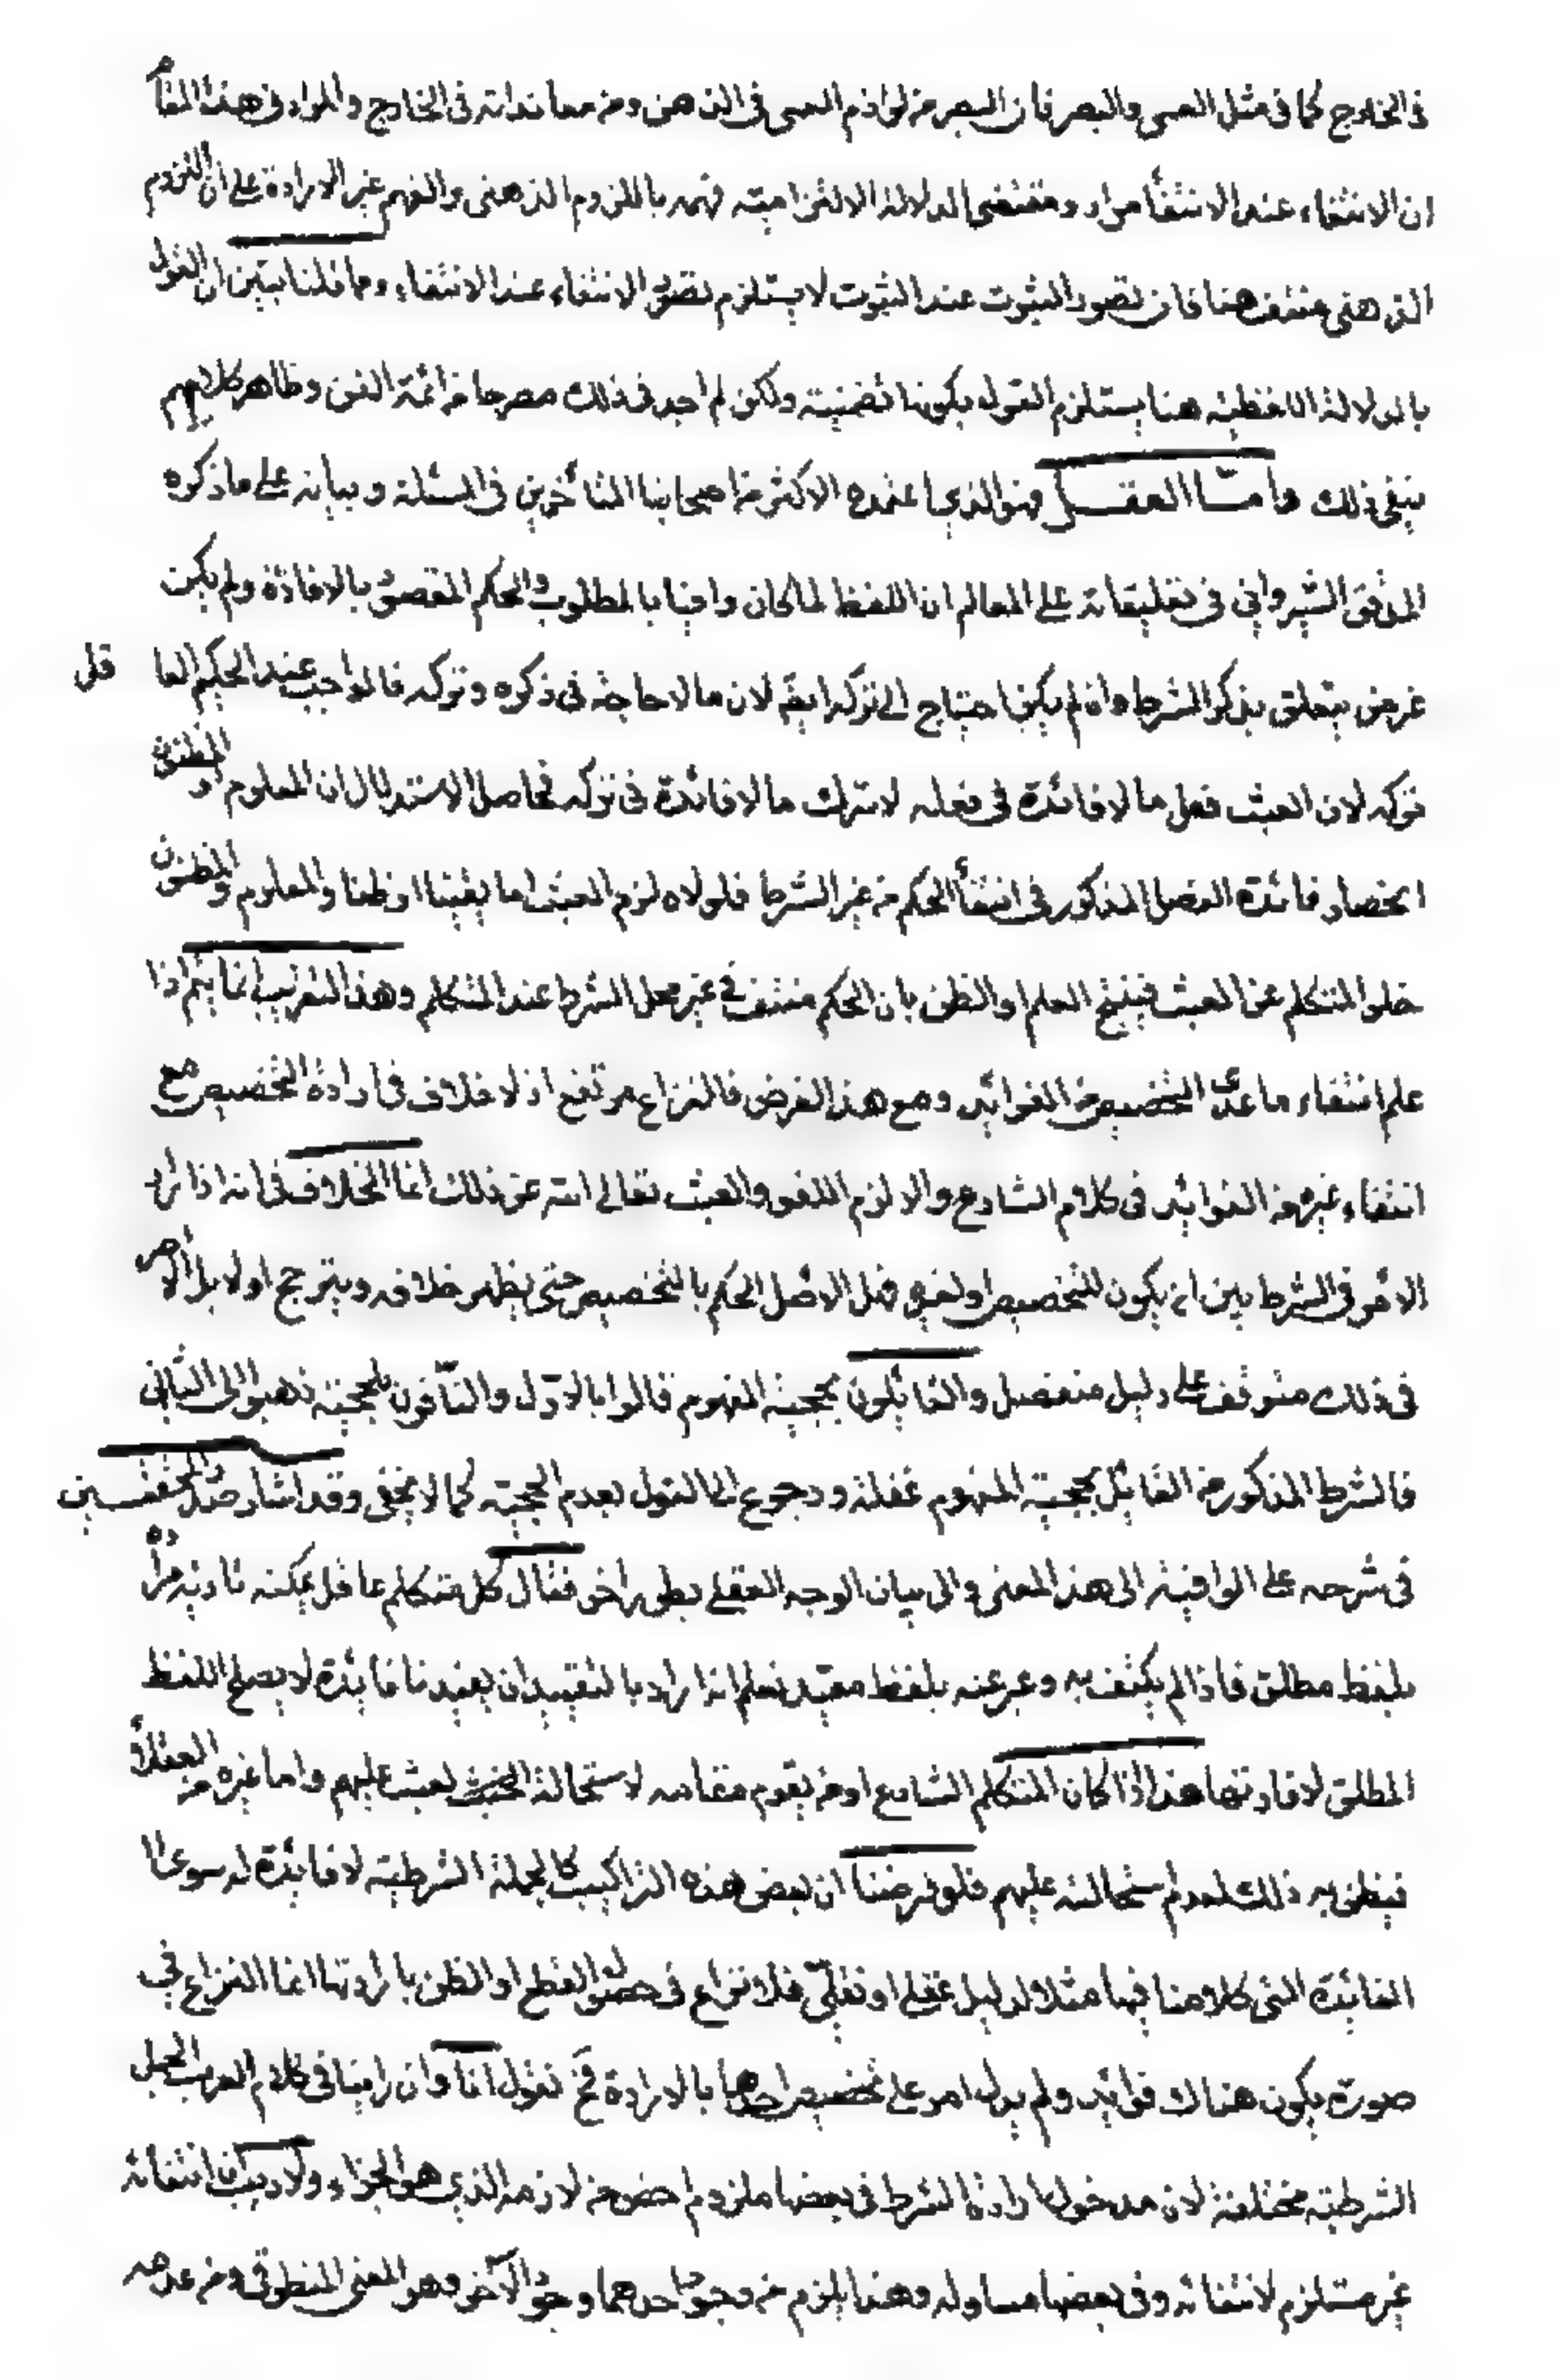 فى الخارج كما فى مثل العمى والبصر فان البصر من لوازم العمى فى الذهن ومن معانداته فى الخارج والمراد فى هذا المقام
ان الانتفاء عند الانتفاء مراد ومقتضى الدلالة الالتزامية فهمه باللزوم الذهنى والفهم غير الارادة على ان اللزوم
الذهنى منتف هنا فان تصور الثبوت عند الثبوت لا يستلزم تصور الانتفاء عند الانتفاء ومما قلنا تبين ان القول
بالدلالة اللفظية هنا يستلزم القول بكونها تضمنية ولكن لم اجد فى ذلك مصرحا من ائمة الفن وظاهر كلامهم
ينفى ذلك واما العقل فهو الذي اعتمده الاكثر من اصحابنا المتأخرين فى المسئلة وبيانه على ما ذكره
المدقق الشيروانى فى تعليقاته على المعالم ان اللفظ لما كان وافيا بالمطلوب والحكم المقصود بالافادة ولم يكن
غرض يتعلق بذكر الشرط وان لم يكن احتياج الى تركه ايضا لان ما لا حاجة فى ذكره وتركه فالواجب عند الحكيم العاقل
تركه لان العبث فعل ما لا فائدة فى فعله لا ترك ما لا فائدة فى تركه فحاصل الاستدلال ان المعلوم او المظنون
انحصار فائدة الفصل المذكور فى انتفاء الحكم من غير الشرط فلولاه لزم العبث اما يقينا او ظنا والمعلوم والمظنون
خلو المتكلم عن العبث فينتج العلم او الظن بان الحكم منتف فى غير محل الشرط عند المتكلم وهذا التقريب انما يتم اذا
علم انتفاء ما عدى التخصيص من الفوائد ومع هذا الفرض فالنزاع مرتفع اذ لا خلاف فى ارادة التخصيص مع
انتفاء غيره من الفوائد فى كلام الشارع والا لزم اللغو والعبث تعالى الله عن ذلك انما الخلاف فى انه اذا تردد
الامر فى الشرط بين ان يكون للتخصيص او لغيره فهل الاصل الحكم بالتخصيص حتى يظهر خلافه ويترجح او لا بل الامر
فى ذلك متوقف على دليل منفصل والقائلون بحجية المفهوم قالوا بالاول والنافون لحجيته ذهبوا الى الثانى
فالشرط المذكور من القائل بحجية المفهوم غفلة ورجوع الى القول بعدم الحجية كما لا يخفى وقد اشار صدر المحققين
فى شرحه على الوافية الى هذا المعنى والى بيان الوجه العقلى بطور اخر فقال كل متكلم عاقل يمكنه تأدية مراده
بلفظ مطلق فاذا لم يكتف به وعبر عنه بلفظ مقيد نعلم انه اراد بالتقييد ان يفيدنا فائدة لا يصلح اللفظ
المطلق لافادتها هذا اذا كان المتكلم الشارع او من يقوم مقامه لاستحالة العبث عليهم واما غيره من العقلاء
فيظن به ذلك لعدم استحالته عليهم فلو فرضنا ان بعض هذه التراكيب كالجملة الشرطية لا فائدة له سوى
الفائدة التى كلامنا فيها مثلا لدليل عقلى او نقلى فلا نزاع فى حصول القطع او الظن بارادتها انما النزاع فى
صورة يكون هناك فوائد ولم يدل امر على تخصيص احدها بالارادة فح نقول انا وان راينا فى كلام العرب الجمل
الشرطية مختلفة لان مدخول اداة الشرط فى بعضها ملزوم اخص من لازمه الذي هو الجزاء ولا ريب ان انتفائه
غير مستلزم لانتفائه وفى بعضها مساو له وهذا يلزم من وجود احدهما وجود الآخر وهو المعنى المنطوقى ومن عدمه